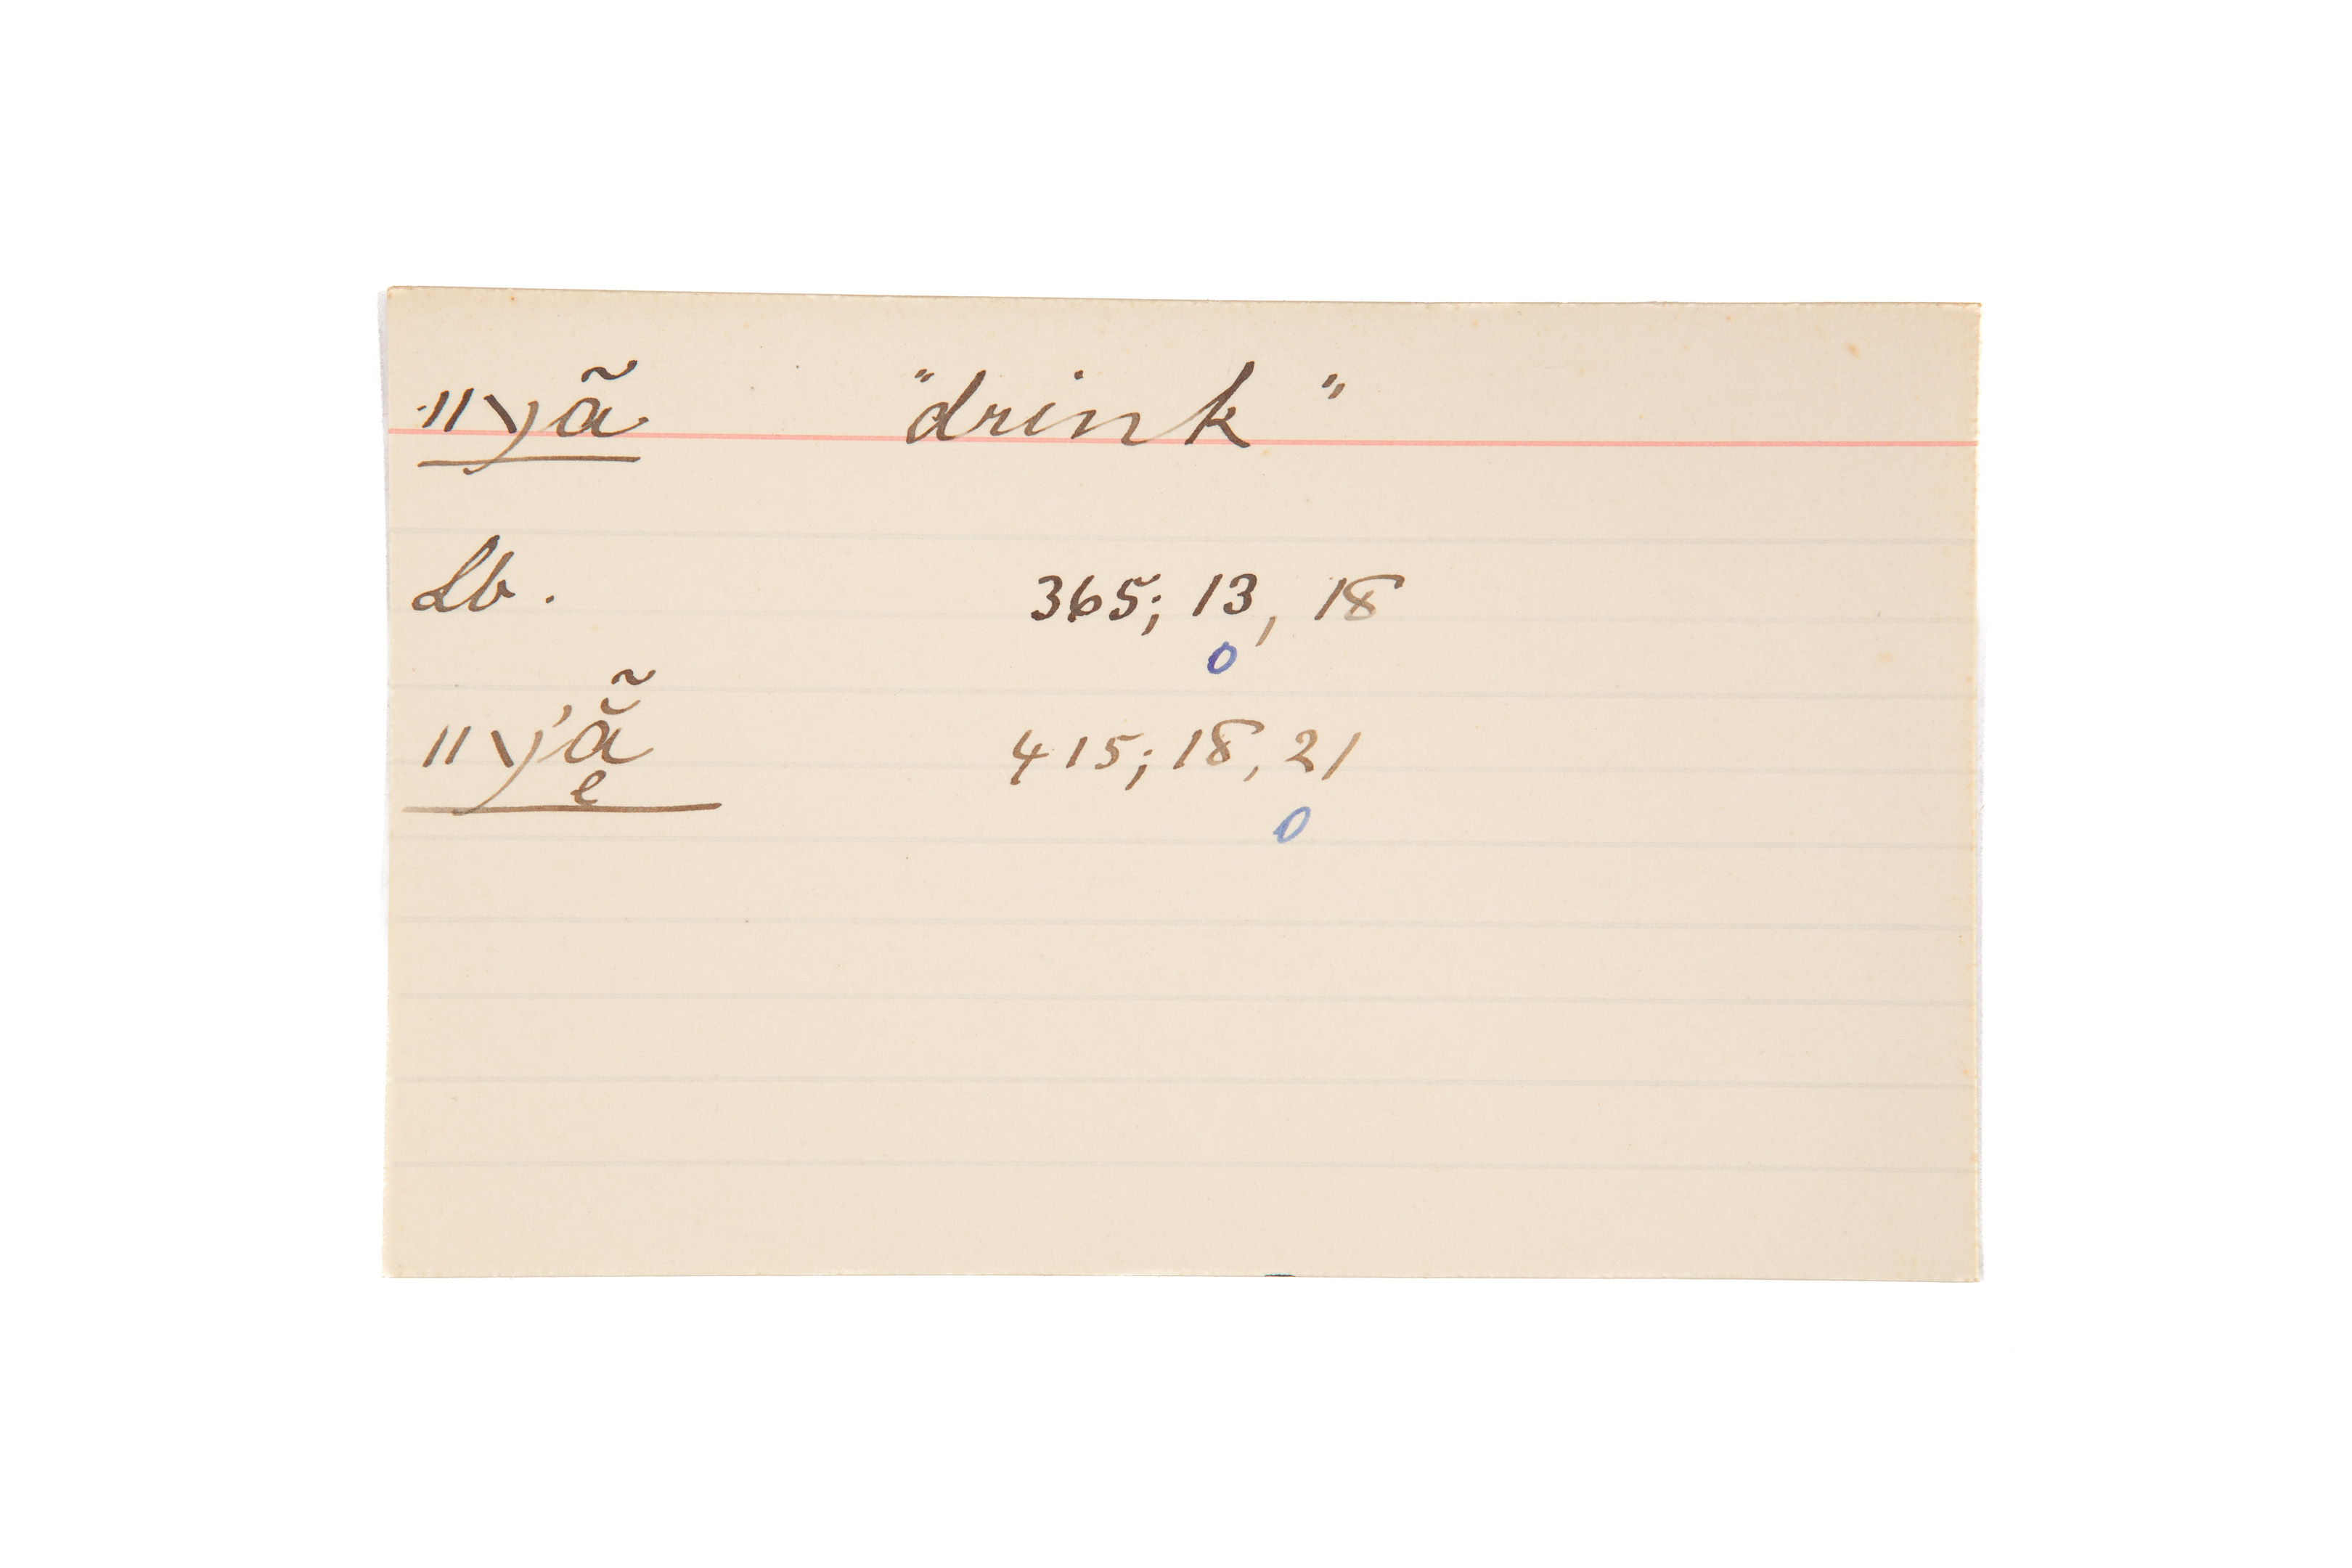 ǁ\yã "drink"
Lb. 365; 13, 18
0
ǁ\y'ã̆
e
415; 18, 21
0